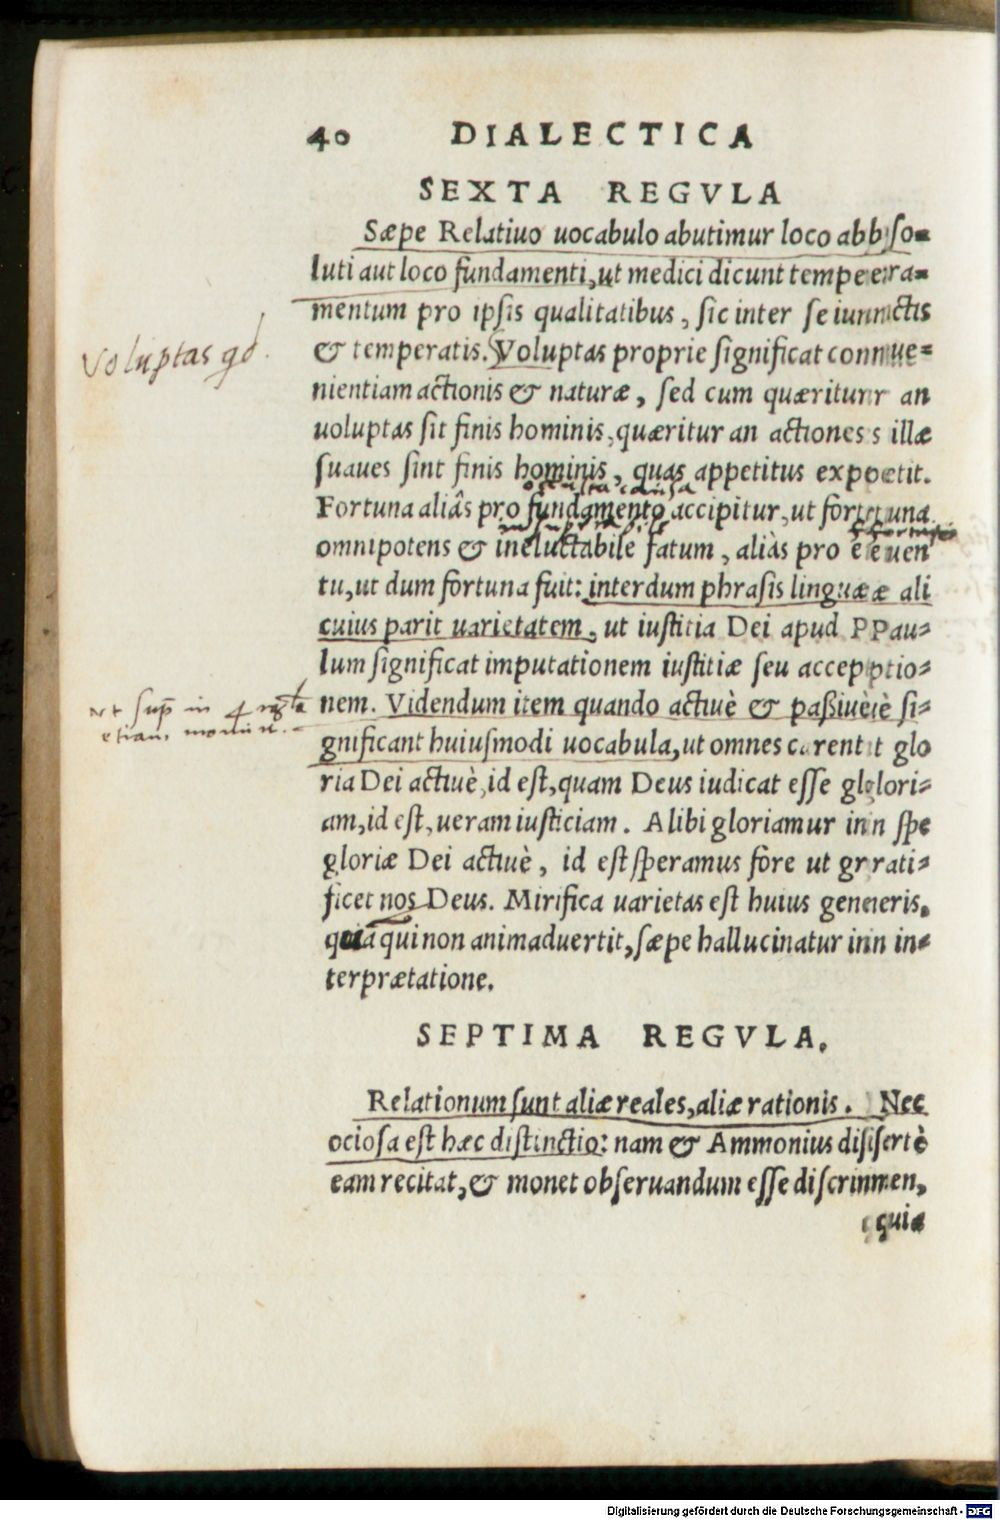 40 DIALECTICA
SEXTA REGVLA
Sæpe Relatiuo uocabulo abutimur loco abso-
luti aut loco fundamenti, ut medici dicunt tempera-
mentum pro ipsis qualitatibus, sic inter se iunctis
& temperatis. Voluptas proprie significat conue-
Voluptas qd.
nientiam actionis & naturæ, sed cum quæritur an
uoluptas sit finis hominis, quæritur an actiones illæ
suaues sint finis hominis, quas appetitus expetit.
occulta causa
Fortuna aliâs pro fundamento accipitur, ut fortuna
omnipotens & ineluctabile fatum, aliàs pro euen
tu, ut dum fortuna fuit: interdum phrasis linguæ ali
cuius parit uarietatem, ut iustitia Dei apud Pau-
lum significat imputationem iustitiæ seu acceptio-
nem. Videndum item quando actiuè & paßiuè si-
gnificant huiusmodi uocabula, ut omnes carent glo
ria Dei actiuè, id est, quam Deus iudicat esse glori-
am, id est, ueram iusticiam. Alibi gloriamur in spe
gloriæ Dei actiuè, id est speramus fore ut grati-
ficet nos Deus. Mirifica uarietas est huius generis,
quia qui non animaduertit, sæpe hallucinatur in in-
terprætatione.
SEPTIMA REGVLA.
Relationum sunt aliæ reales, aliæ rationis. Nec
ociosa est hæc distinctio: nam & Ammonius disertè
eam recitat, & monet obseruandum esse discrimen,
quia
Digitalisierung gefördert durch die Deutsche Forschungsgemeinschaft - DFG